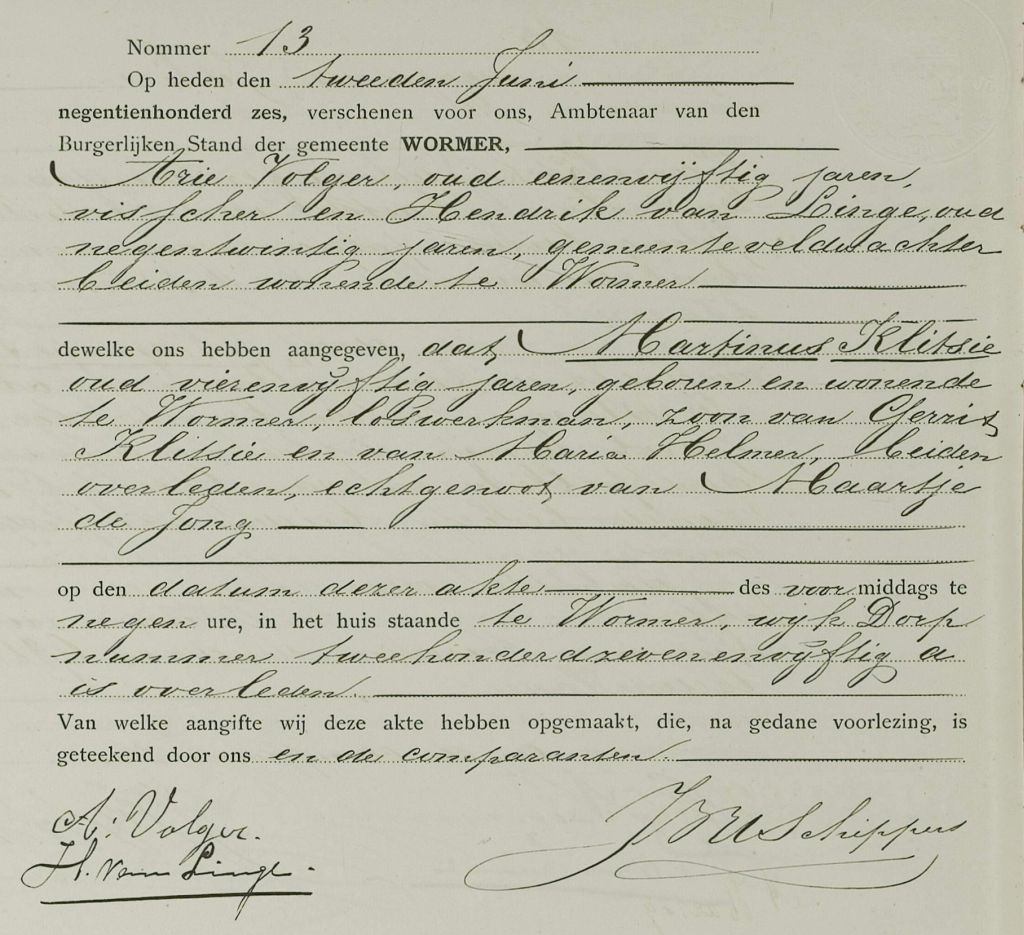 Nommer 13
Op heden den tweeden Juni
negentienhonderd zes, verschenen voor ons, Ambtenaar van den
Burgerlijken Stand der gemeente WORMER,
Arie Volger, oud eenenvijftig jaren,
visscher en Hendrik van Linge, oud
negentwintig jaren, gemeenteveldwachter
beiden wonende te Wormer
dewelke ons hebben aangegeven, dat Martinus Klitsie
oud vierenvijftig jaren, geboren en wonende
te Wormer, loswerkman, zoon van Gerrit
Klitsie en van Maria Helmer, beiden
overleden, echtgenoot van Maartje
de Jong
op den datum dezer akte des voormiddags te
negen ure, in het huis staande te Wormer, wijk Dorp
nummer tweehonderdzevenenvijftig a
is overleden.
Van welke aangifte wij deze akte hebben opgemaakt, die, na gedane voorlezing, is
geteekend door ons en de comparanten.
A: Volger.
H. van Linge.
Schippers